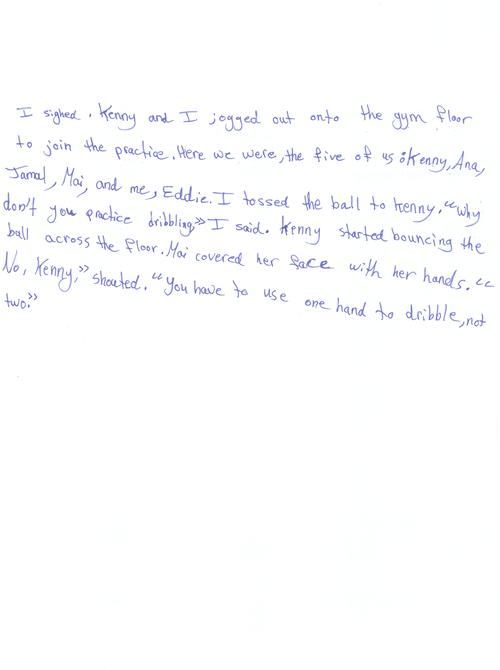 I sighed. Kenny and I jogged out onto the gym floor
to join the practice. Here we were, the five of us: Kenny, Ana,
Jamal, Mai, and me, Eddie. I tossed the ball to Kenny. "Why
don't you practice dribbling," I said. Kenny started bouncing the
ball across the floor. Mai covered her face with her hands. "
No, Kenny," shouted. "You have to use one hand to dribble, not
two."